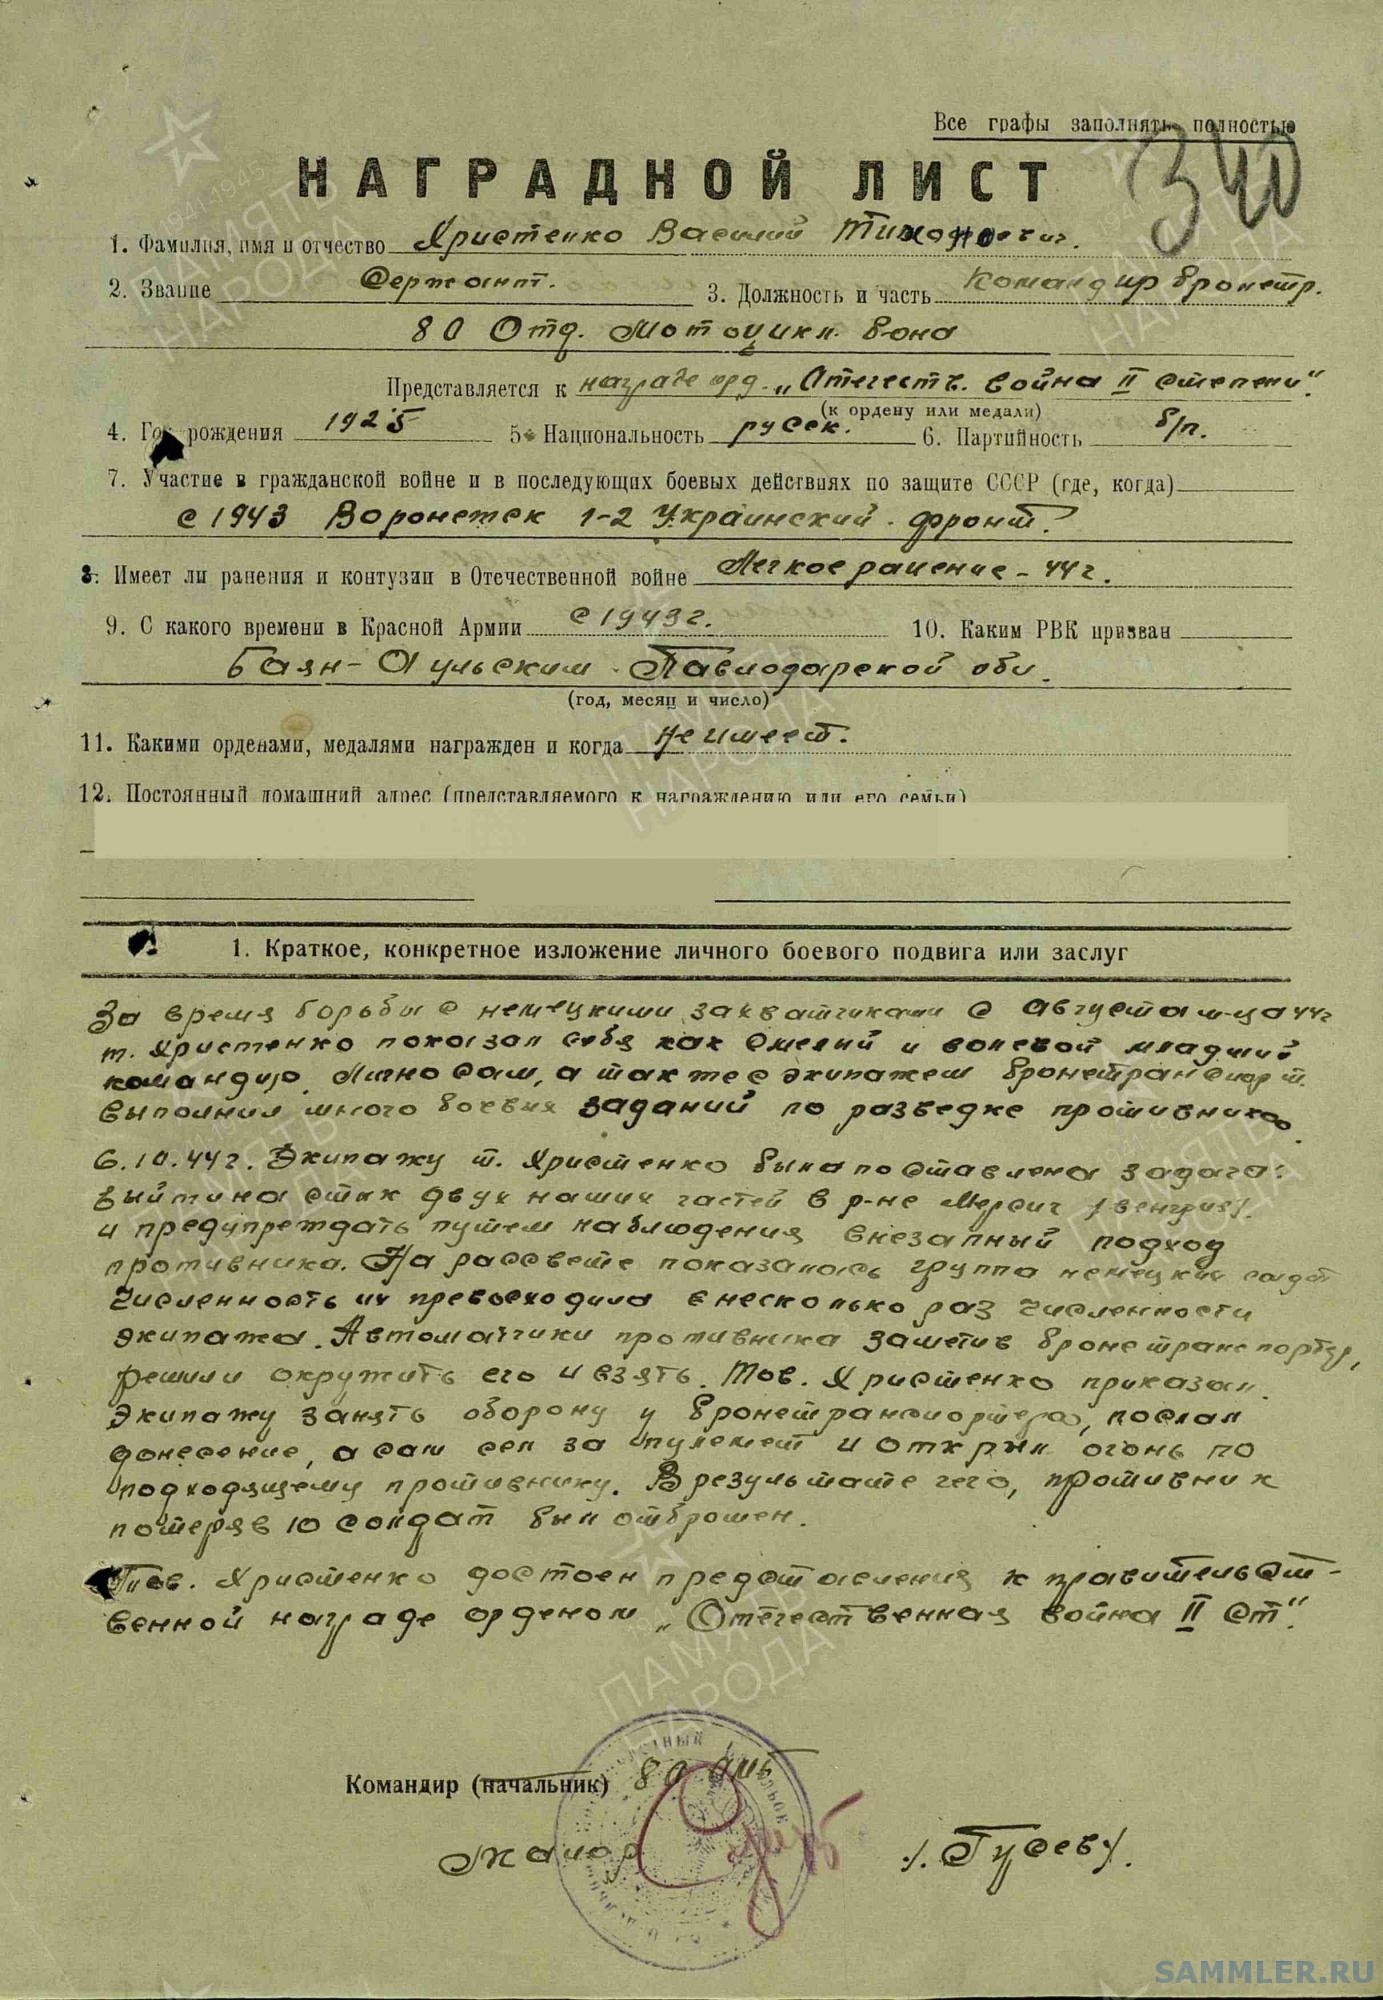 Все графы заполнять полностью
340
НАГРАДНОЙ ЛИСТ
1. Фамилия, имя и отчество Христенко Василий Тихонович.
2. Звание Сержант. 3. Должность и часть Командир бронетр.
80 Отд. Мотоцикл. б-она
Представляется к награде орд. „Отечеств. война II степени".
(к ордену или медали)
4. Год рождения 1925 5. Национальность русск. 6. Партийность б/п.
7. Участие в гражданской войне и в последующих боевых действиях по защите СССР (где, когда)
с 1943 Воронежск 1-2 Украинский фронт.
8. Имеет ли ранения и контузии в Отечественной войне Легкое ранение - 44 г.
9. С какого времени в Красной Армии с 1943 г. 10. Каким РВК призван
Баян-Аульским Павлодарской обл.
(год, месяц и число)
11. Какими орденами, медалями награжден и когда не имеет.
12. Постоянный домашний адрес (представляемого к награждению или его семьи)
1. Краткое, конкретное изложение личного боевого подвига или заслуг
За время борьбы с немецкими захватчиками с августа м-ца 44 г
т. Христенко показал себя как смелый и волевой младший
командир. Лично сам, а также с экипажем бронетранспорт.
выполнил много боевых заданий по разведке противника.
6.10.44 г. Экипажу т. Христенко была поставлена задача:
выйти на стык двух наших частей в р-не (венгрия).
и предупреждать путем наблюдения внезапный подход
противника. На рассвете показалась группа немецких солдат
численность их превосходила в несколько раз численности
экипажа. Автоматчики противника заметив бронетранспортер,
решили окружить его и взять. Тов. Христенко приказал
экипажу занять оборону у бронетранспортера, послал
донесение, а сам сел за пулемет и открыл огонь по
подходящему противнику. В результате чего, противник
потеряв 10 солдат был отброшен.
Тов. Христенко достоен представления к правительст-
венной награде орденом „Отечественная война II ст".
Командир (начальник) 80 омб
майор /Гусев/.
ПАМЯТЬ НАРОДА
SAMMLER.RU